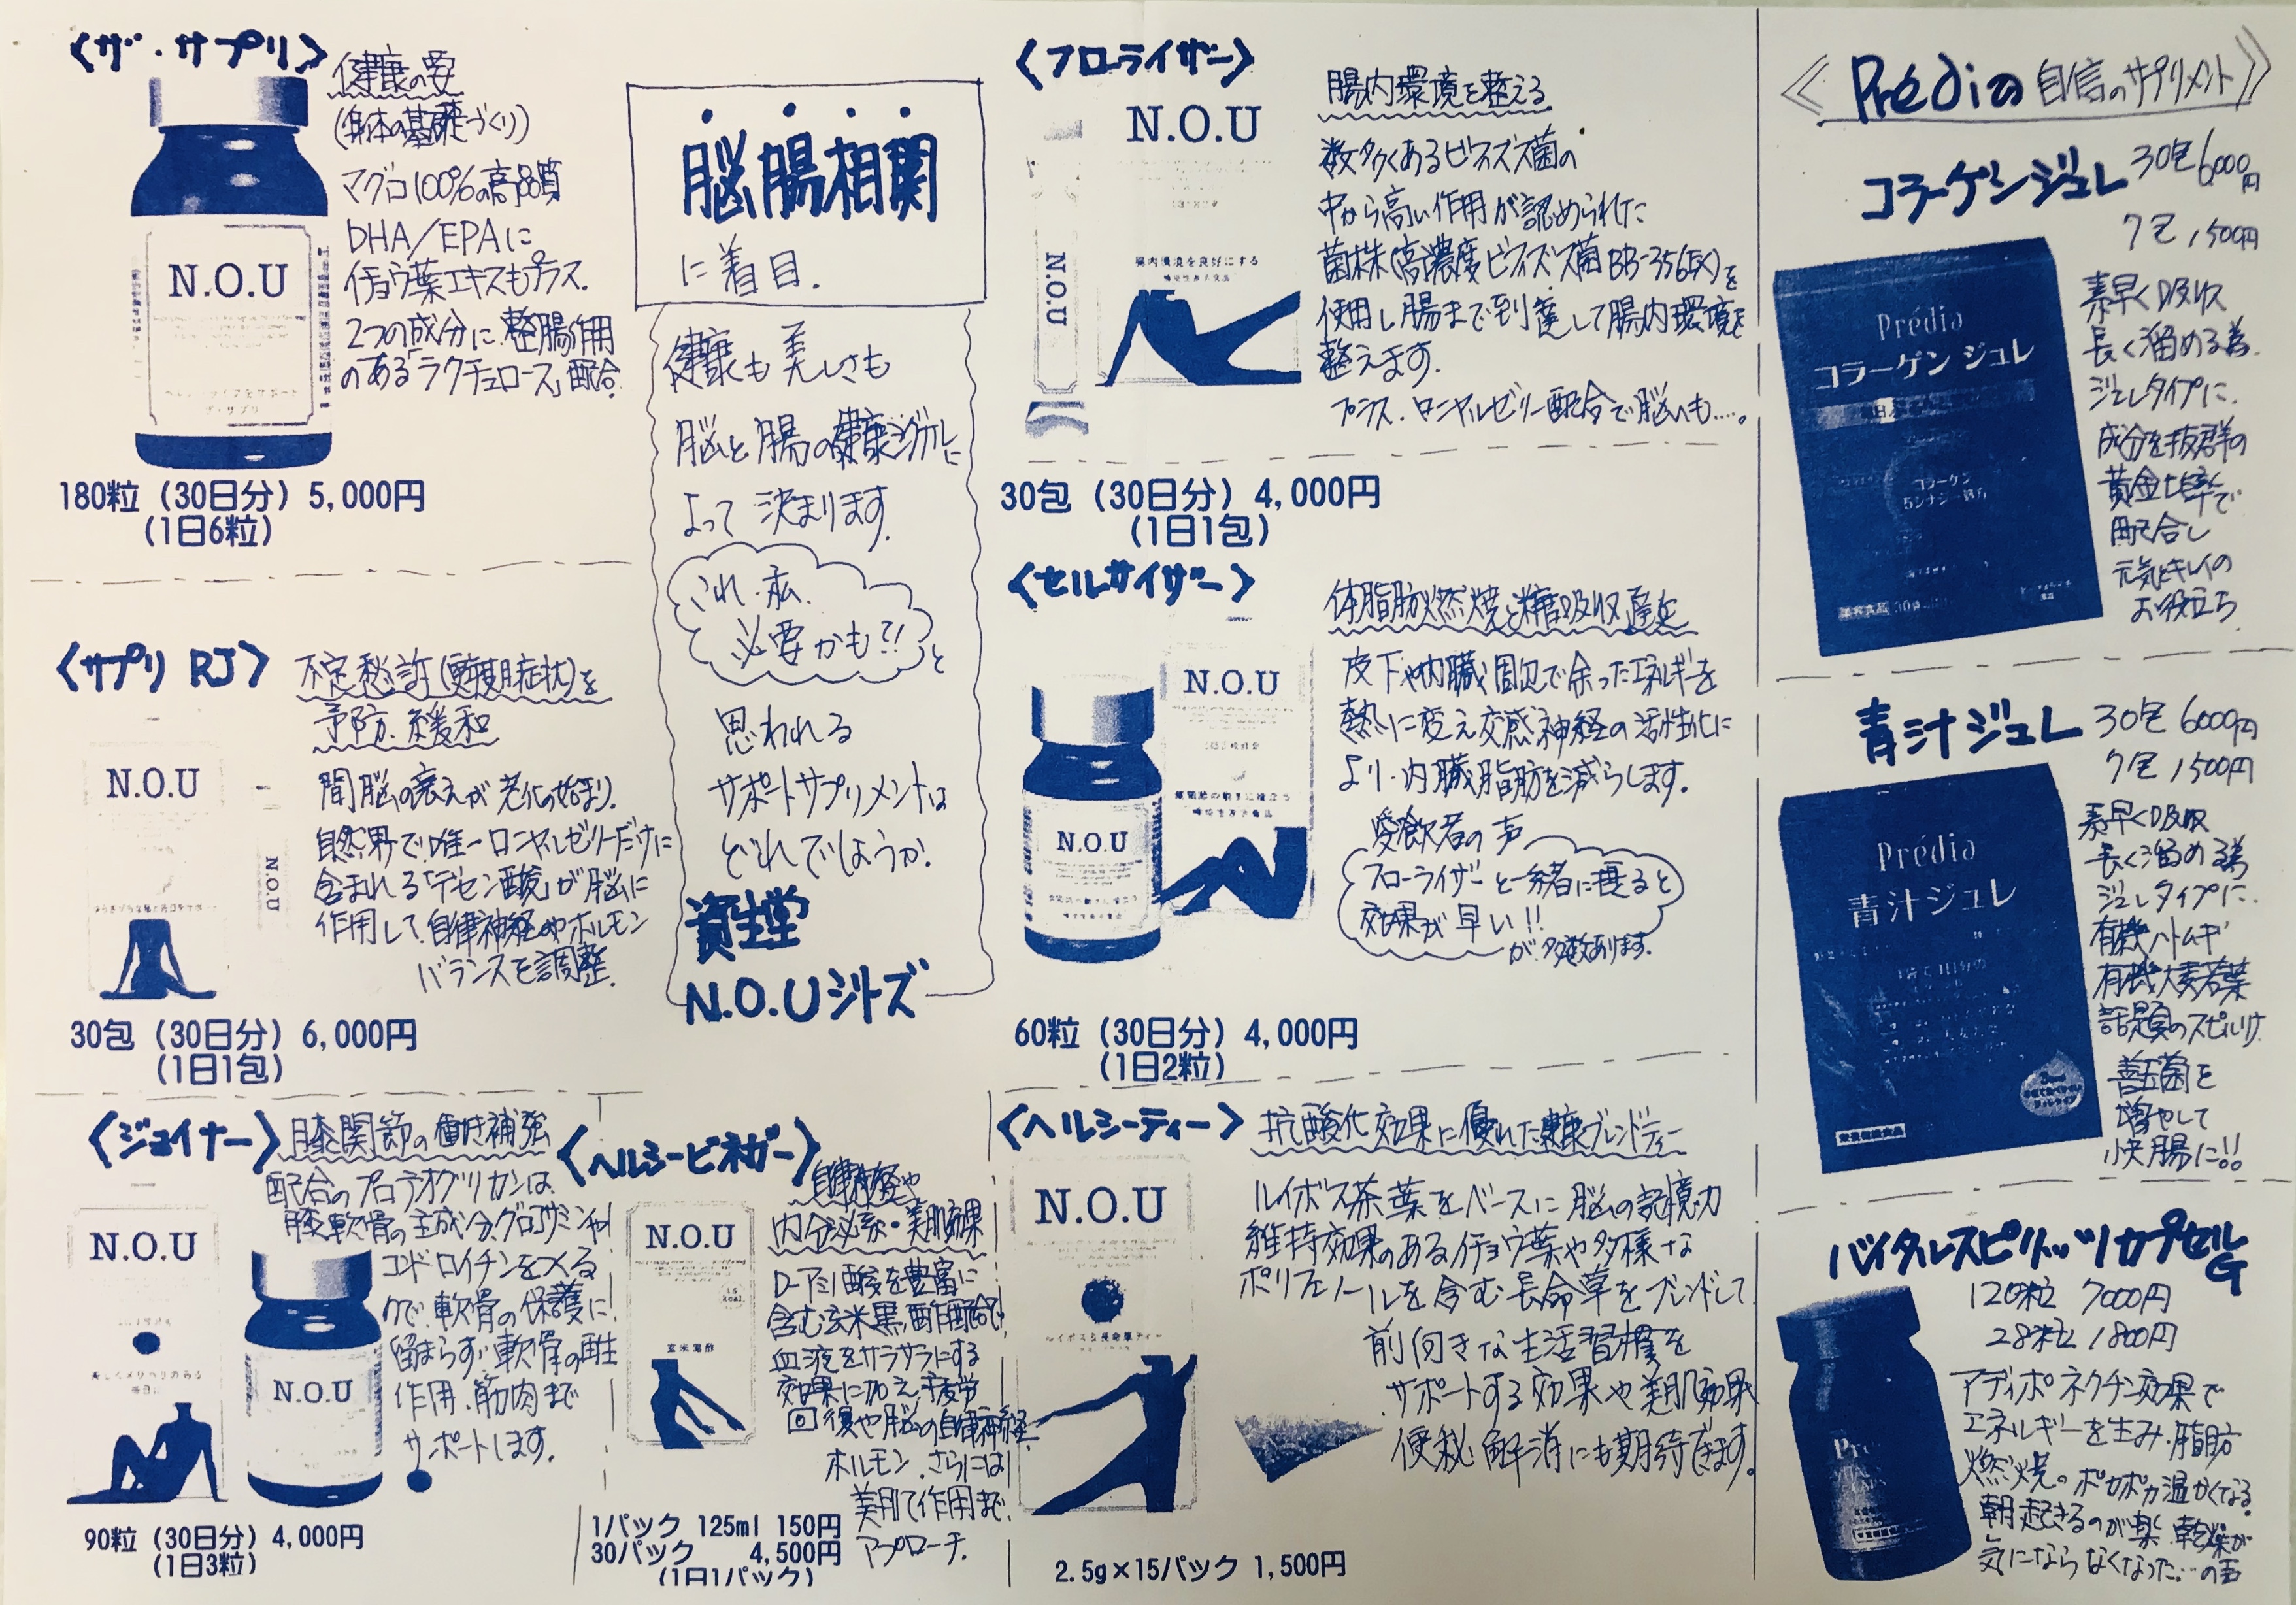 〈ザ・サプリ〉
健康の要
(身体の基礎づくり)
マグロ100%の高品質
DHA/EPAに
イチョウ葉エキスもプラス.
2つの成分に整腸作用
のある「ラクチュロース」配合.
N.O.U
ザ・サプリ
180粒（30日分）5,000円
(1日6粒)
〈サプリ RJ〉
不定愁訴(更年期症状)を
予防.緩和
間脳の衰えが老化の始まり.
自然界で唯一ローヤルゼリーだけに
含まれる「デセン酸」が脳に
作用して.自律神経やホルモン
バランスを調整.
N.O.U
N.O.U
30包（30日分）6,000円
(1日1包)
〈ジョイナー〉
膝関節の働き補強
配合のプロテオグリカンは、
膝軟骨の主成分.グルコサミンや
コンドロイチンをつくる
ので.軟骨の保護に
留まらず.軟骨の再生
作用.筋肉まで
サポートします.
N.O.U
N.O.U
90粒（30日分）4,000円
(1日3粒)
脳腸相関
に着目.
健康も美しさも
脳と腸の健康シグナルに
よって決まります.
これ.私.
必要かも?!
と
思われる
サポートサプリメントは
どれでしょうか.
資生堂
N.O.Uシリーズ
〈ヘルシービネガー〉
自律神経や
内分泌系・美肌効果
D-アミノ酸を豊富に
含む玄米黒酢配合で
血液をサラサラにする
効果に加え.疲労
回復や脳の自律神経.
ホルモン.さらには
美肌作用まで
アプローチ.
N.O.U
玄米黒酢
1パック 125ml 150円
30パック 4,500円
(1日1パック)
〈フローライザー〉
腸内環境を整える
数多くあるビフィズス菌の
中から高い作用が認められた
菌株(高濃度ビフィズス菌BB-356EX)を
使用し腸まで到達して腸内環境を
整えます.
プラス.ローヤルゼリー配合で脳へも....。
N.O.U
N.O.U
腸内環境を良好にする
30包（30日分）4,000円
(1日1包)
〈セルサイザー〉
体脂肪燃焼と糖吸収遅延
皮下や内臓周辺で余ったエネルギーを
熱に変え交感神経の活性化に
より.内臓脂肪を減らします.
愛飲者の声
フローライザーと一緒に摂ると
効果が早い!!
が.多数あります.
N.O.U
N.O.U
60粒（30日分）4,000円
(1日2粒)
〈ヘルシーティー〉
抗酸化効果に優れた健康ブレンドティー
ルイボス茶葉をベースに脳の記憶力
維持効果のあるイチョウ葉や多様な
ポリフェノールを含む長命草をブレンドして
前向きな生活習慣を
サポートする効果や美肌効果
便秘解消にも期待できます.
N.O.U
ルイボス&長命草ティー
2.5g×15パック 1,500円
《Prédiaの自信のサプリメント》
コラーゲンジュレ
30包 6,000円
7包 1500円
素早く吸収
長く溜める為.
ジュレタイプに.
成分を抜群の
黄金比率で
配合し
元気とキレイの
お役立ち
Prédia
コラーゲン ジュレ
コラーゲン
青汁ジュレ
30包 6000円
7包 1500円
素早く吸収
長く溜める為
ジュレタイプに.
有機ハトムギ
有機大麦若葉
話題のスピルリナ
善玉菌を
増やして
快腸に!!
Prédia
青汁ジュレ
バイタルスピリッツカプセルG
120粒 7000円
28粒 1800円
アディポネクチン効果で
エネルギーを生み.脂肪
燃焼のポカポカ温かくなる
朝起きるのが楽.乾燥が
気にならなくなった...の声